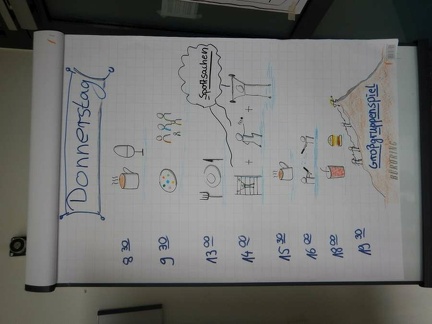 Donnerstag
8 30
9 30
13 00
Sportsachen
14 00
15 30
16 00
18 00
19 30
Großgruppenspiel